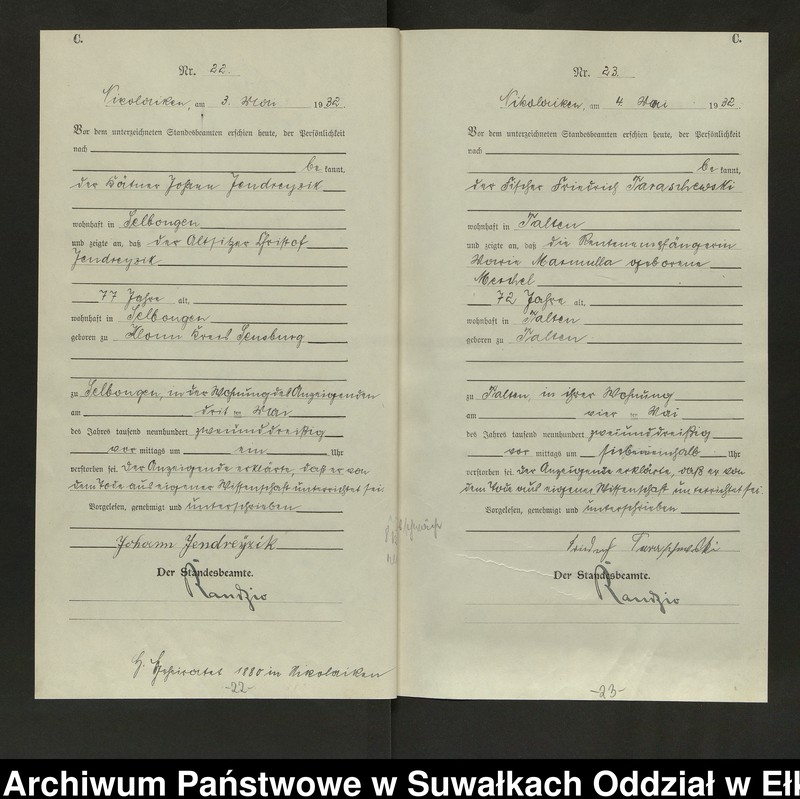 C.
Nr. 22.
Nikolaiken, am 3. Mai 1932.
Vor dem unterzeichneten Standesbeamten erschien heute, der Persönlichkeit
nach
be kannt,
der Kätner Johann Jendreyzik
wohnhaft in Selbongen
und zeigte an, daß der Altsitzer Christof
Jendreyzik
77 Jahre alt,
wohnhaft in Selbongen
geboren zu Klonn Kreis Sensburg
zu Selbongen, in der Wohnung des Anzeigenden
am drit ten Mai
des Jahres tausend neunhundert zweiunddreißig
vor mittags um ein Uhr
verstorben sei. Der Anzeigende erklärte, daß er von
dem Tode aus eigener Wissenschaft unterrichtet sei.
Vorgelesen, genehmigt und unterschrieben
Johann Jendreÿzik
Der Standesbeamte.
Randzio
Geheiratet 1880 in Nikolaiken
-22-
C.
Nr. 23.
Nikolaiken, am 4. Mai 1932.
Vor dem unterzeichneten Standesbeamten erschien heute, der Persönlichkeit
nach
be kannt,
der Fischer Friedrich Taraschewski
wohnhaft in Talten
und zeigte an, daß die Rentenempfängerin
Marie Masmulla geborene
Meschel
72 Jahre alt,
wohnhaft in Talten
geboren zu Talten
zu Talten, in ihrer Wohnung
am vier ten Mai
des Jahres tausend neunhundert zweiunddreißig
vor mittags um siebeneinhalb Uhr
verstorben sei. Der Anzeigende erklärte, daß er von
dem Tode aus eigener Wissenschaft unterrichtet sei.
Vorgelesen, genehmigt und unterschrieben
Friedrich Taraschewski
Der Standesbeamte.
Randzio
-23-
Archiwum Państwowe w Suwałkach Oddział w Eł